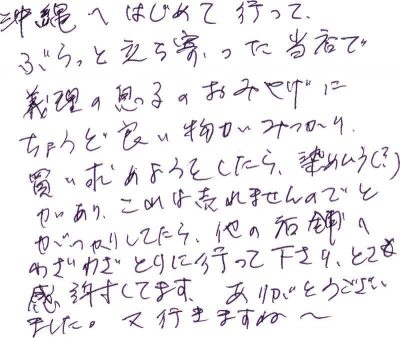 沖縄へはじめて行って、
ぶらっと立ち寄った当店で
義理の息子のおみやげに
ちょうど良い物がみつかり、
買い求めようとしたら、染めむら(?)
があり、これは売れませんのでと
がっかりしてたら、他の店舗へ
わざわざとりに行って下さり、とても
感謝してます。ありがとうござい
ました。又行きますね〜